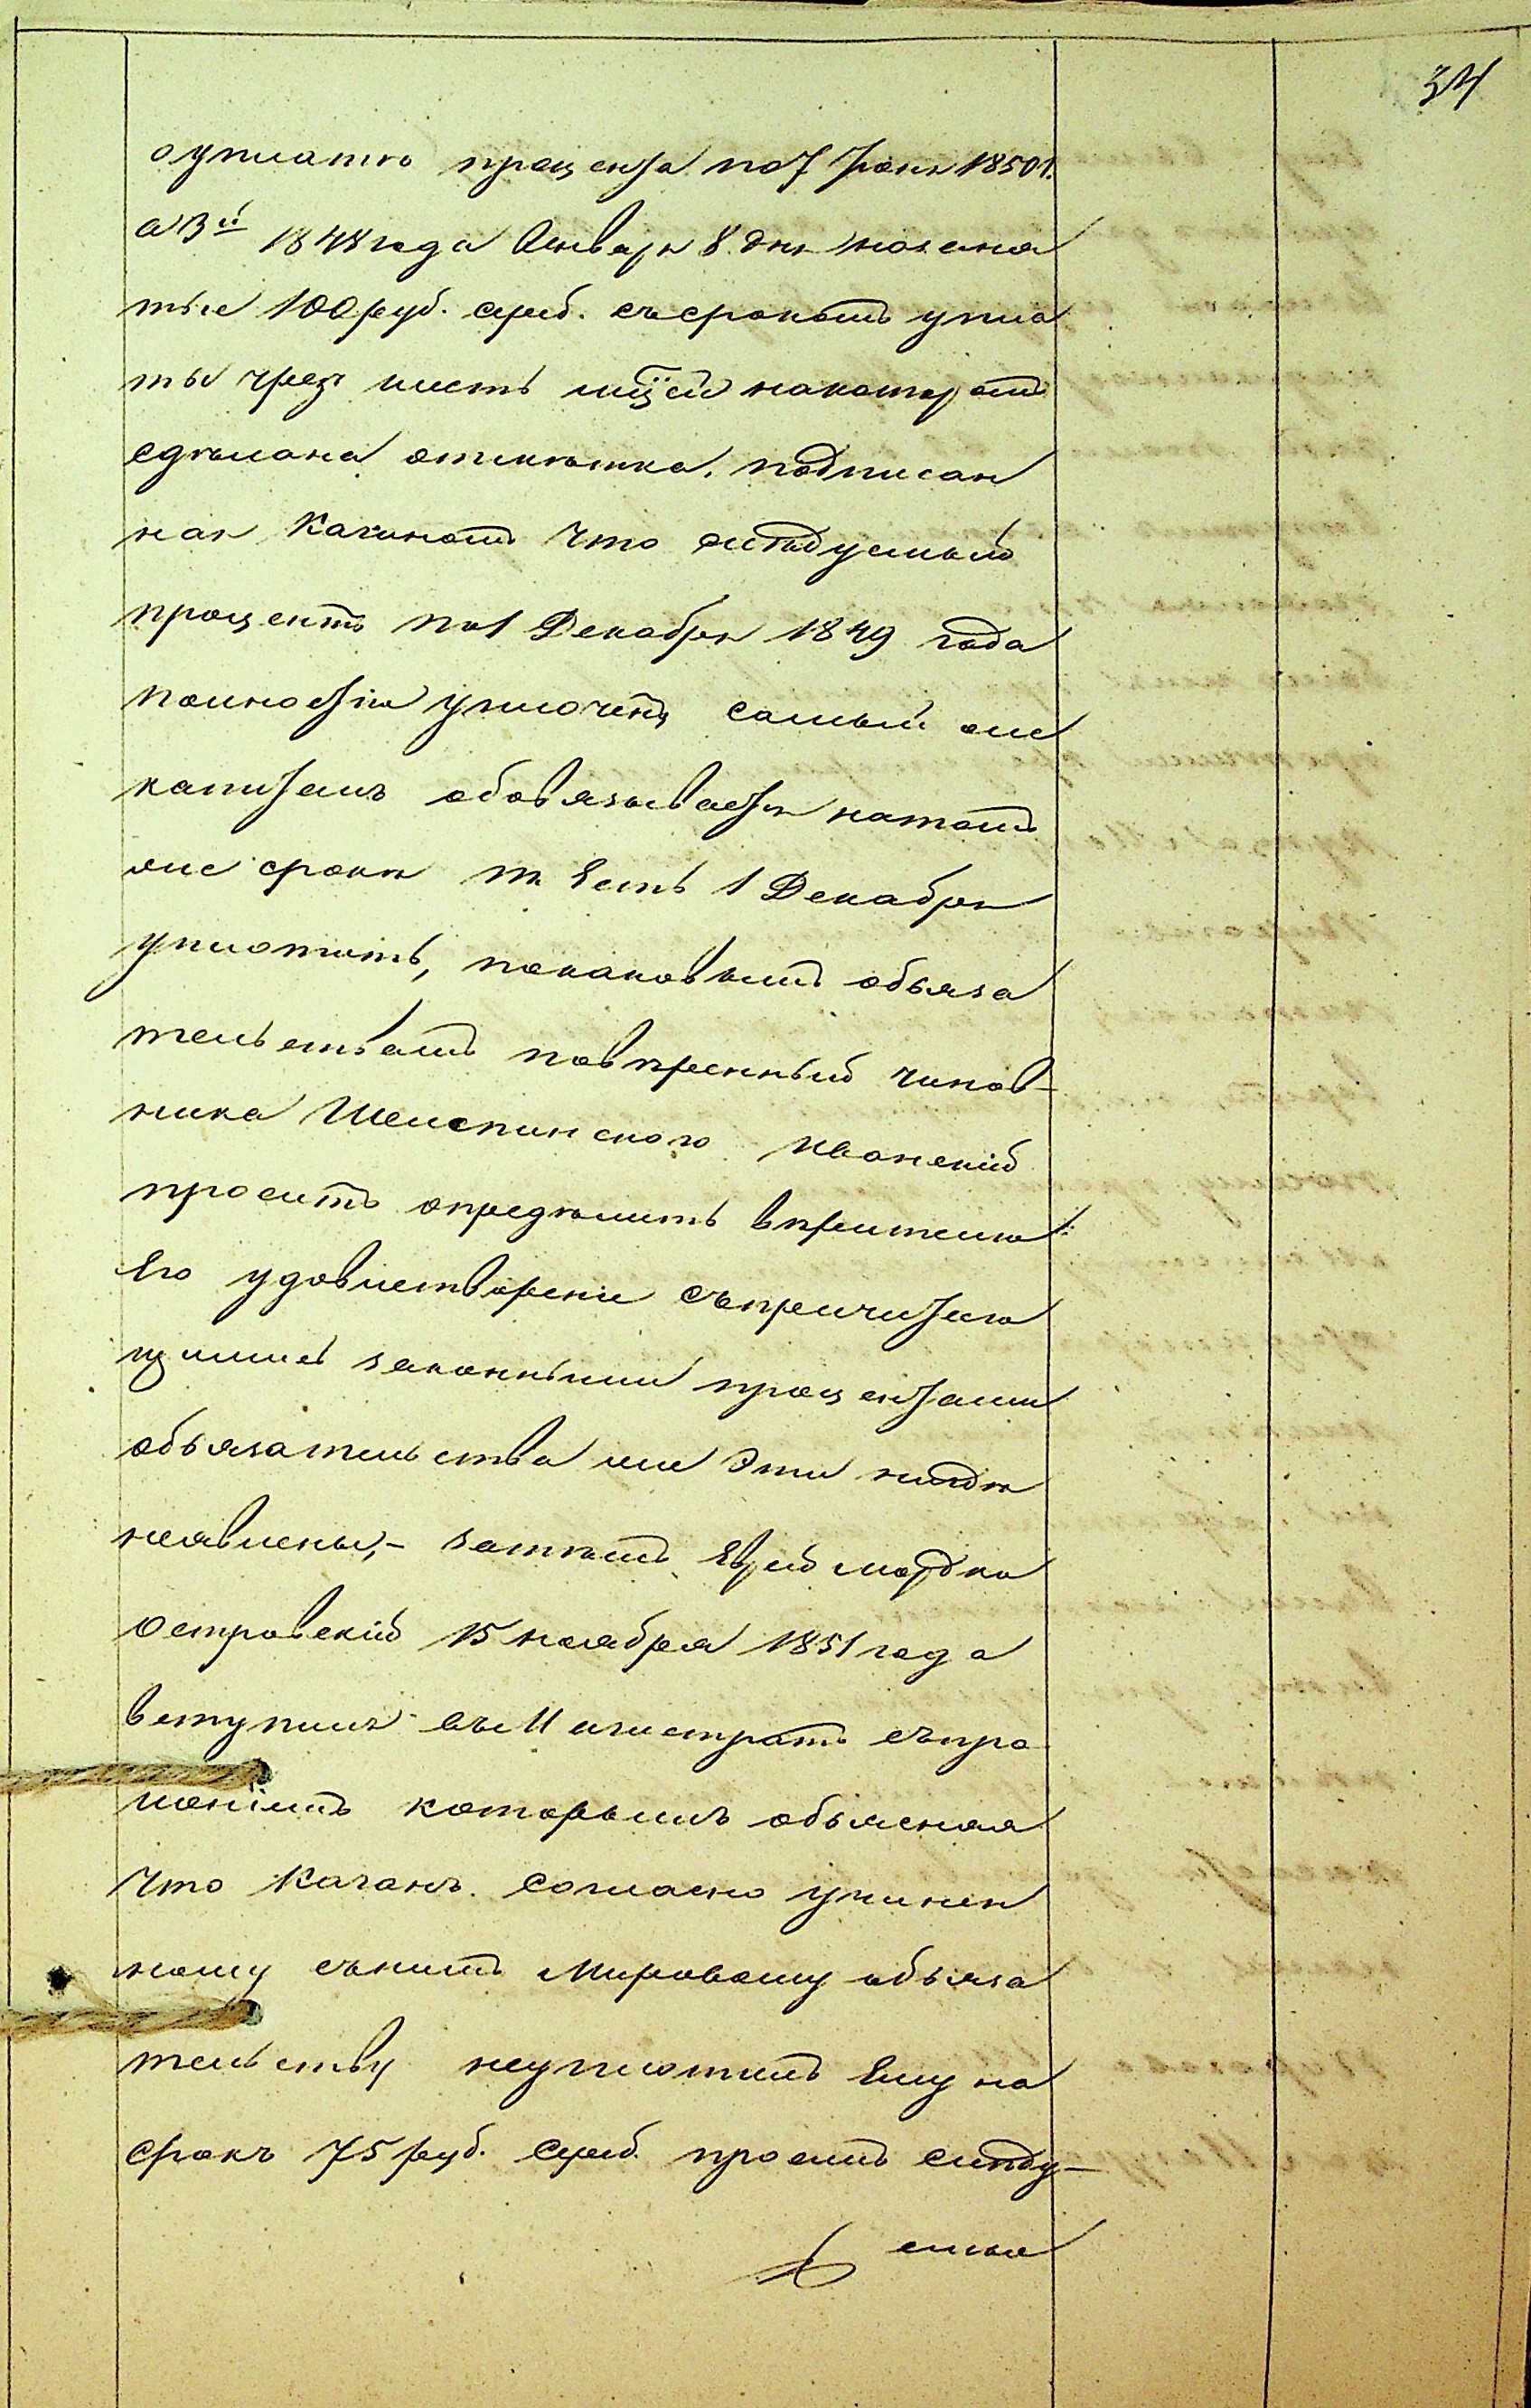 34
оуплатѣ процента по 7 Іюня 1850 г.
а 3й 1848 года Января 8 дня на сена
тые 100 руб. сереб. съ срокомъ упла
ты чрезъ шесть мцей на которомъ
сдѣлана отмѣтка, подписан
ная Каганомъ что слѣдуемый
процентъ по 1 Декабря 1849 года
полностію уплоченъ, самый же
капиталъ обовязывается на томъ
же срокъ т. Есть 1 Декабря
уплотить, по каковымъ обяза
тельствамъ повѣренный чинов-
ника Шелепинскаго Иванскій
проситъ опредѣлить вѣрителю
Его удовлетвореніе съ причитаю
щимися законными процентами
обязательства же Эти нигдѣ
неявлены, - затѣмъ Еврей Мордко
Островскій 15 ноября 1851 года
вступилъ въ Магистратъ съ про
шеніемъ которымъ объясняя
что Каганъ согласно учинен
ному съ нимъ Мировому обяза
тельству неуплотилъ Ему на
срокъ 75 руб. сереб. проситъ слѣду-
емые